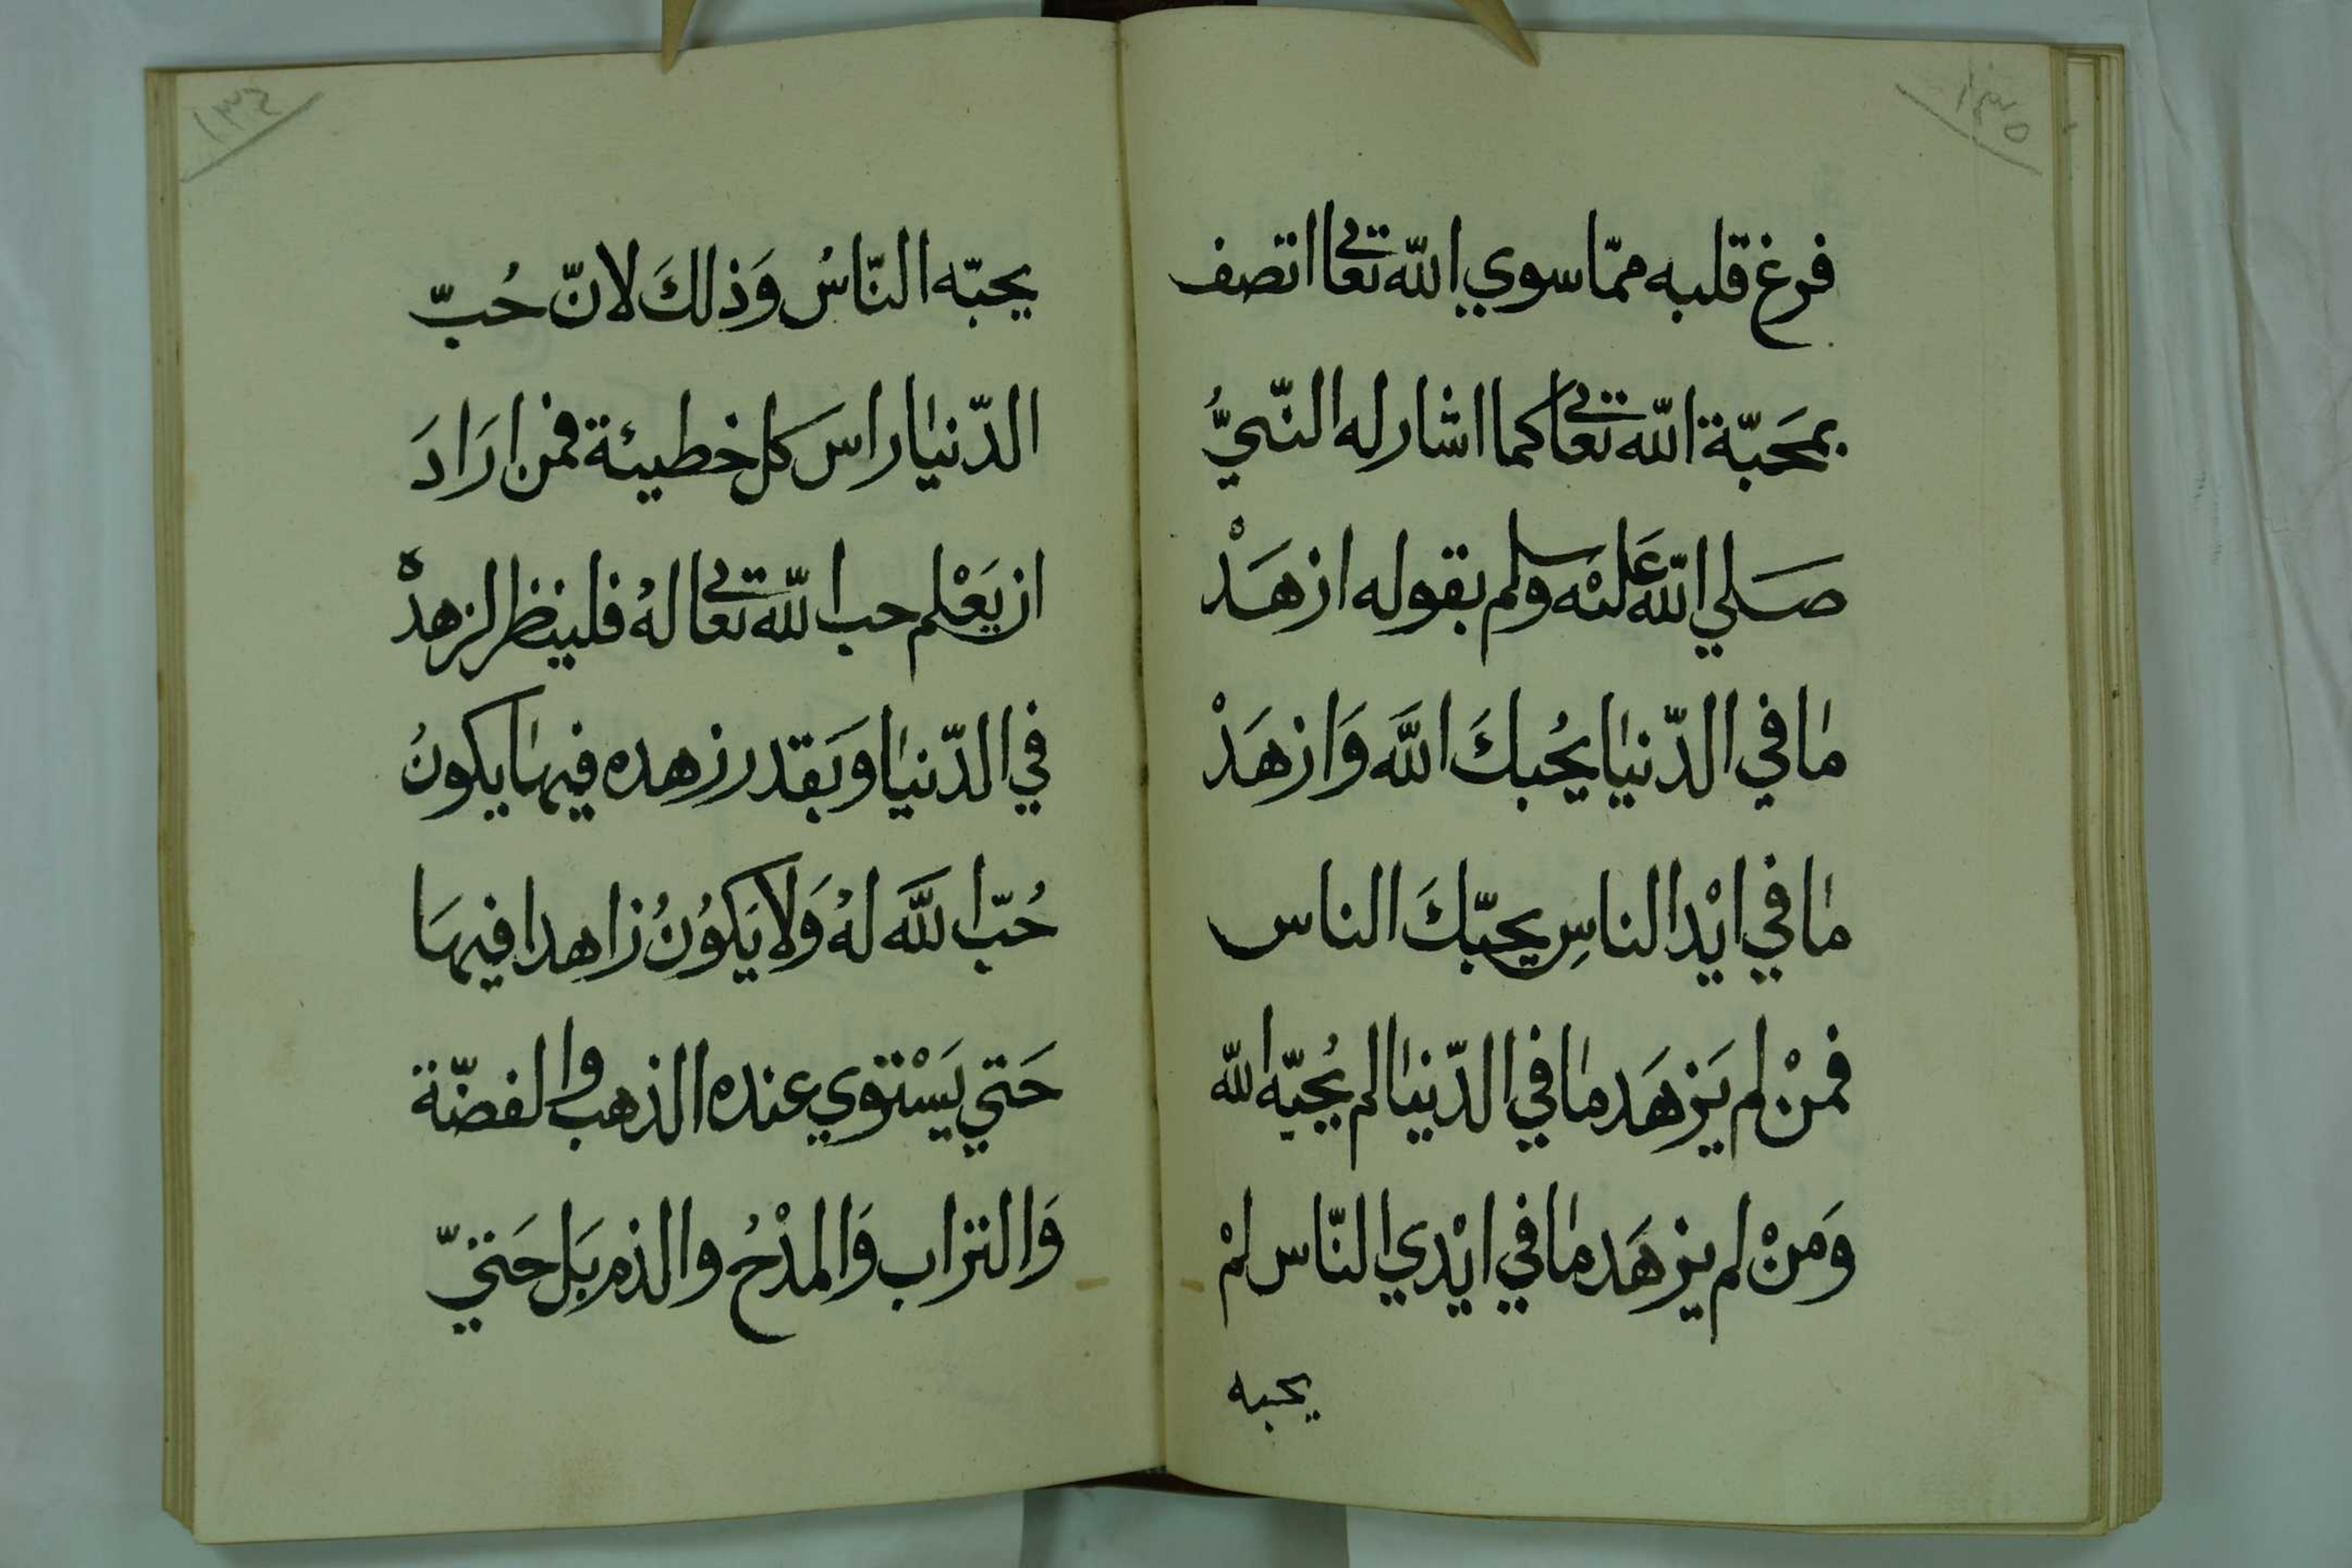 ١٣٥
فرغ قلبه ممّا سوي اللّه تعالي اتصف
بمحَبّة اللّه تعالي كما اشار له النّبيُّ
صَلي اللّه عَليْه وسلم بقوله ازهَدْ
مٰا في الدّنيٰا يحُبكَ اللَّه وَازهَدْ
مٰا في ايْدا الناسِ يحبّكَ الناس
فمنْ لم يَزهَد مٰا في الدّنيٰا لم يُحبّه اللّه
وَمنْ لم يزهَد مٰا في ايْدي النّاس لمْ
يحبه
١٣٦
يحبّه النّاسُ وَذلكَ لانّ حُبّ
الدّنيٰا راس كل خطيئة فمن ارَادَ
ان يَعْلم حب اللّه تعالي لهُ فلينظر لزهدهْ
في الدّنيٰا وبَقدر زهده فيهٰا يكونُ
حُبّ اللَّه لهُ وَلا يَكوُنُ زاهدا فيهَا
حَتي يَسْتوي عنده الذهب والفضّة
وَالتراب وَالمدْحُ والذم بَل حَتيّ